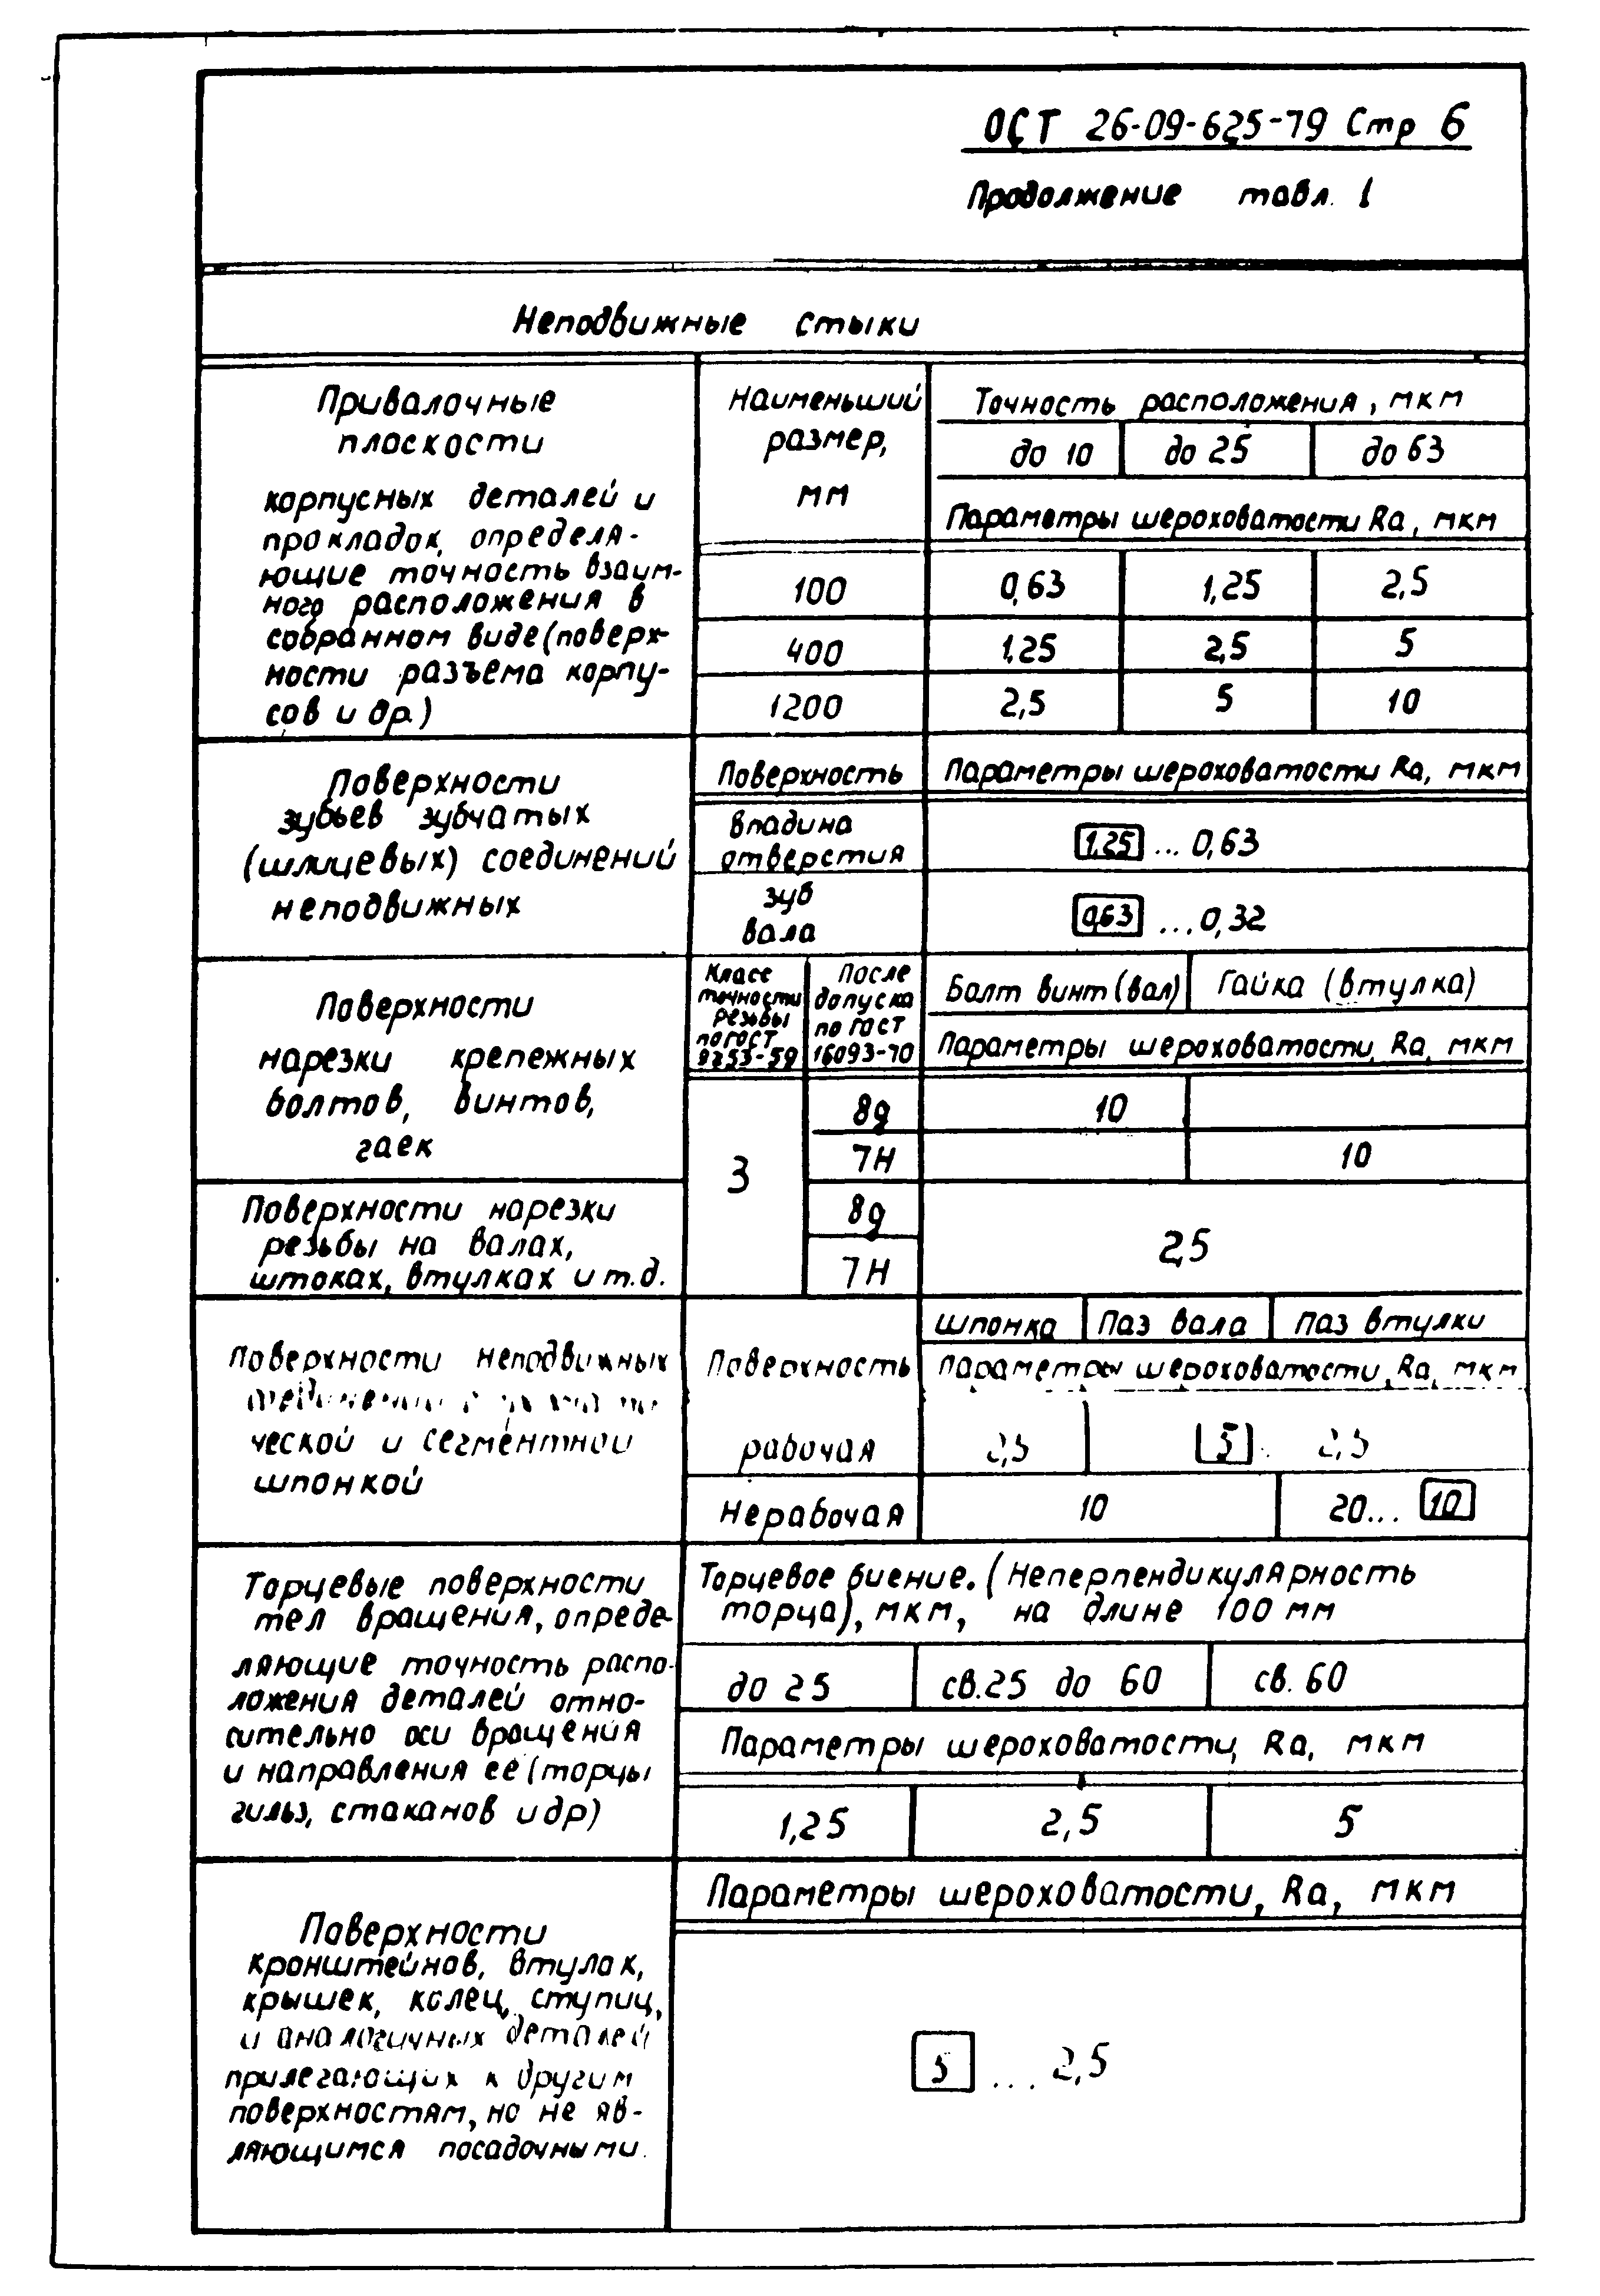 ОСТ 26-09-625-79 Стр 6
Продолжение табл. 1
Неподвижные стыки
Привалочные
плоскости
корпусных деталей и
прокладок, определя-
ющие точность взаим-
ного расположения в
собранном виде (поверх-
ности разъема корпу-
сов и др.)
Наименьший
размер,
мм
Точность расположения, мкм
до 10 до 25 до 63
Параметры шероховатости Ra, мкм
100 0,63 1,25 2,5
400 1,25 2,5 5
1200 2,5 5 10
Поверхности
зубьев зубчатых
(шлицевых) соединений
неподвижных
Поверхность Параметры шероховатости Ra, мкм
впадина
отверстия
1,25 ... 0,63
зуб
вала
0,63 ... 0,32
Поверхности
нарезки крепежных
болтов, винтов,
гаек
Класс
точности
резьбы
по ГОСТ
9253-59
После
допуска
по ГОСТ
16093-70
Болт винт (вал) Гайка (втулка)
Параметры шероховатости, Ra, мкм
3
8g 10
7H 10
Поверхности нарезки
резьбы на валах,
штоках, втулках и т.д.
8g
7H
2,5
Поверхности неподвижных
ческой и сегментной
шпонкой
Поверхность
Шпонка Паз вала Паз втулки
Параметры шероховатости, Ra, мкм
рабочая 2,5 5 .. 2,5
Нерабочая 10 20... 10
Торцевые поверхности
тел вращения, опреде-
ляющие точность распо-
ложения деталей отно-
сительно оси вращения
и направления ее (торцы
гильз, стаканов и др)
Торцевое биение. (Неперпендикулярность
торца), мкм, на длине 100 мм
до 25 св.25 до 60 св. 60
Параметры шероховатости, Ra, мкм
1,25 2,5 5
Поверхности
кронштейнов, втулок,
крышек, колец, ступиц,
и аналогичных деталей
прилегающих к другим
поверхностям, но не яв-
ляющимся посадочными.
Параметры шероховатости, Ra, мкм
5 ... 2,5